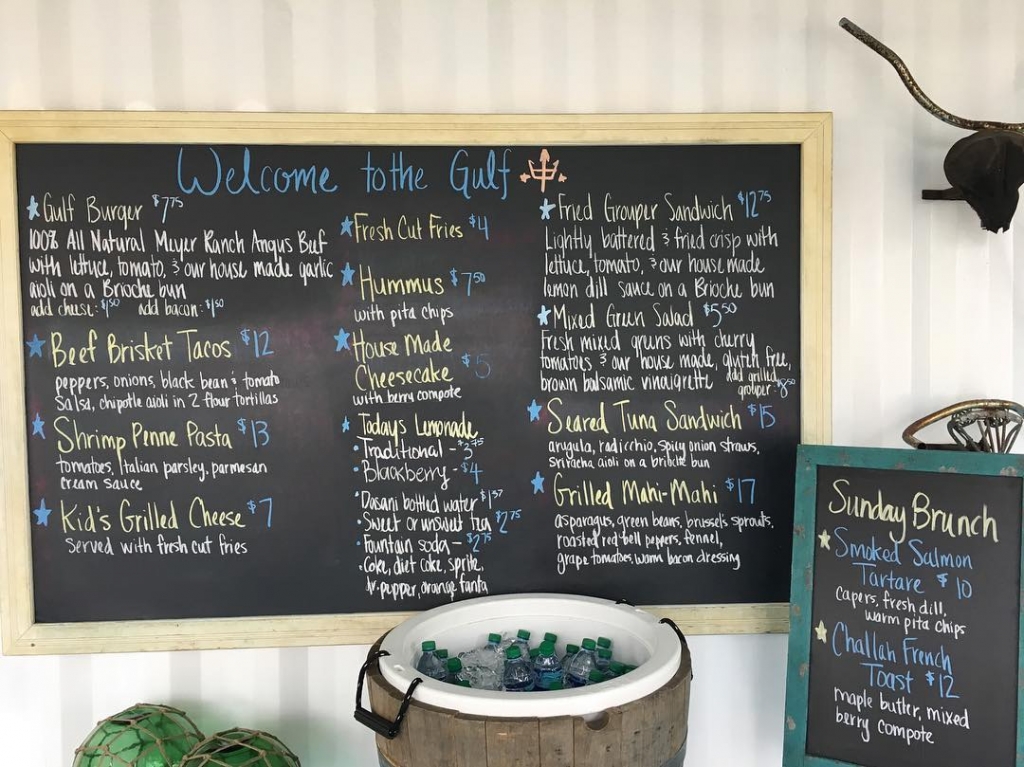 Welcome to the Gulf
Gulf Burger $7.75
100% All Natural Meyer Ranch Angus Beef
with lettuce, tomato, & our house made garlic
aioli on a Brioche bun
add cheese: $1.50 add bacon: $1.50
Beef Brisket Tacos $12
peppers, onions, black bean & tomato
salsa, chipotle aioli in 2 flour tortillas
Shrimp Penne Pasta $13
tomatoes, Italian parsley, parmesan
cream sauce
Kid's Grilled Cheese $7
served with fresh cut fries
Fresh Cut Fries $4
Hummus $7.50
with pita chips
House Made
Cheesecake $5
with berry compote
Today's Lemonade
· Traditional - $3.75
· Blackberry - $4
· Dasani bottled water $1.57
· Sweet or unsweet tea $2.75
· Fountain soda - $2.75
· Coke, diet coke, sprite,
dr. pepper, orange fanta
Fried Grouper Sandwich $12.75
Lightly battered & fried crisp with
lettuce, tomato, & our house made
lemon dill sauce on a Brioche bun
Mixed Green Salad $5.50
Fresh mixed greens with cherry
tomatoes & our house made, gluten free,
brown balsamic vinaigrette add grilled
grouper - $8.50
Seared Tuna Sandwich $15
arugula, radicchio, spicy onion straws,
sriracha aioli on a brioche bun
Grilled Mahi-Mahi $17
asparagus, green beans, brussels sprouts,
roasted red bell peppers, fennel,
grape tomatoes, warm bacon dressing
Sunday Brunch
Smoked Salmon
Tartare $10
capers, fresh dill,
warm pita chips
Challah French
Toast $12
maple butter, mixed
berry compote